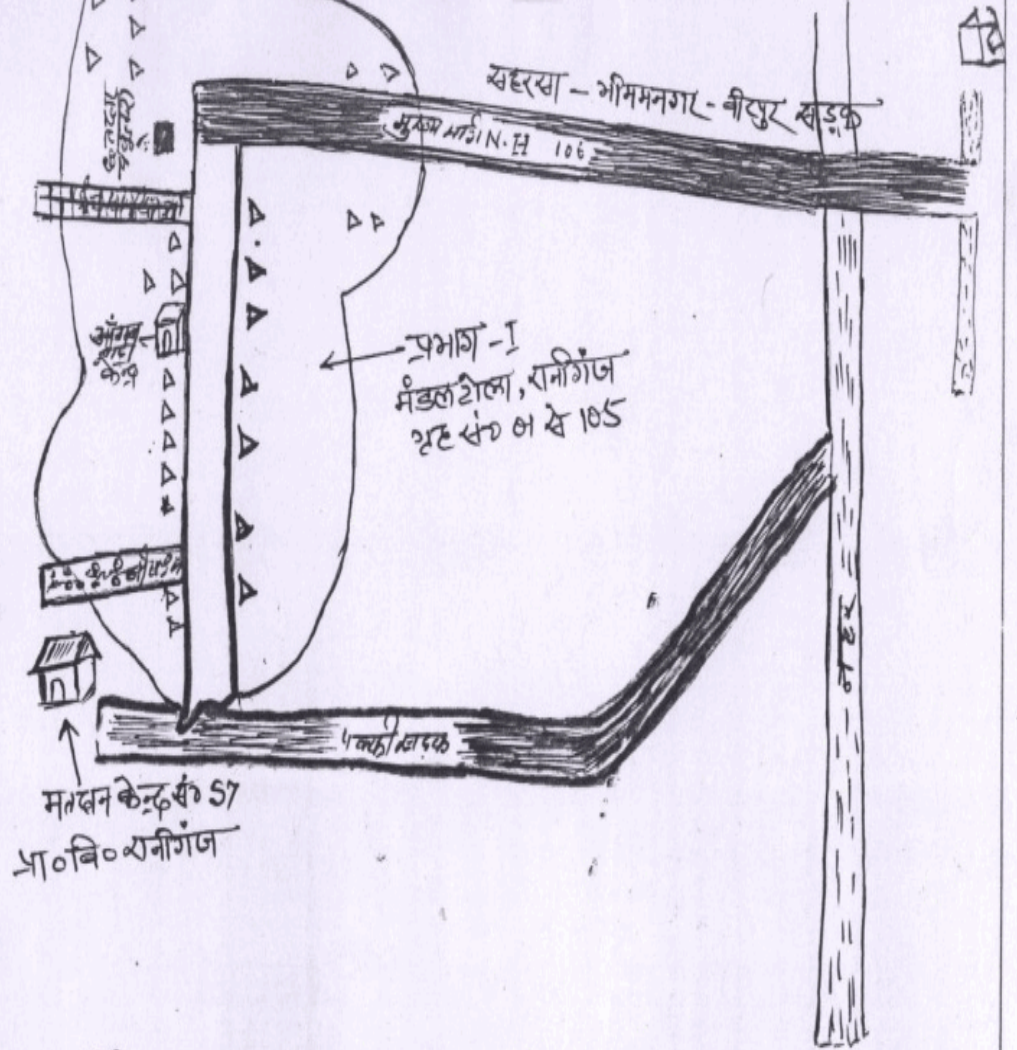 सहरसा - भीमनगर - वीरपुर सड़क
मुख्य मार्ग N.H 106
आंगन
बाड़ी
केन्द्र
प्रभाग - I
मंडल टोला, रानीगंज
गृह सं० 01 से 105
नहर
पक्की सड़क
मतदान केन्द्र सं० 57
प्रा० वि० रानीगंज